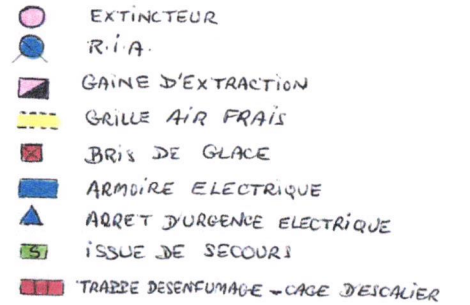 EXTINCTEUR
R.I.A.
GAINE D'EXTRACTION
GRILLE AIR FRAIS
BRIS DE GLACE
ARMOIRE ELECTRIQUE
ARRET D'URGENCE ELECTRIQUE
S ISSUE DE SECOURS
TRAPPE DESENFUMAGE - CAGE D'ESCALIER